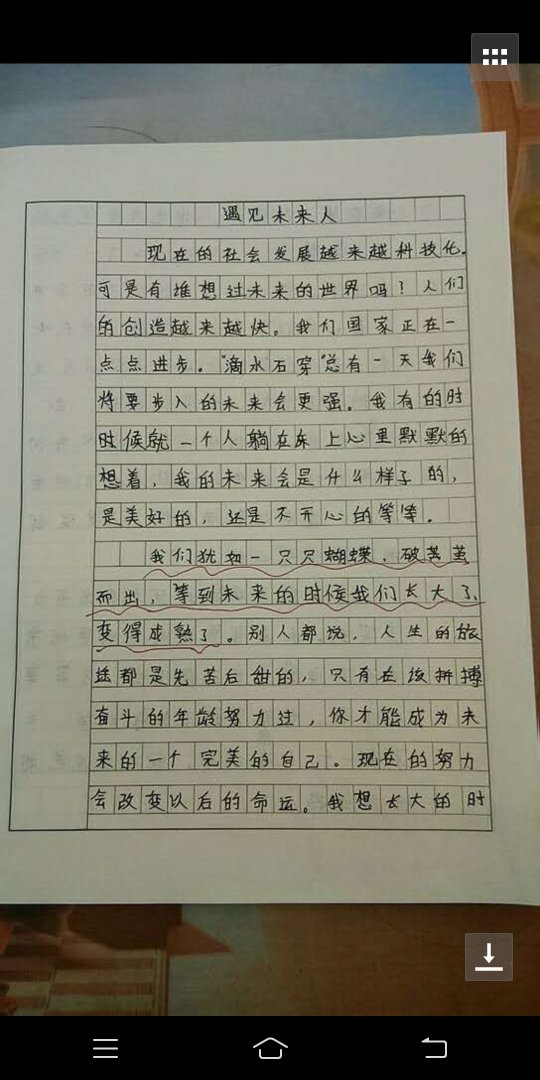 遇见未来人
现在的社会发展越来越科技化。
可是有谁想过未来的世界吗！人们
的创造越来越快。我们国家正在一
点点进步。"滴水石穿"总有一天我们
将要步入的未来会更强。我有的时
时候就一个人躺在床上心里默默的
想着，我的未来会是什么样子的，
是美好的，还是不开心的等等。
我们犹如一只只蝴蝶，破茧
而出，等到未来的时候我们长大了、
变得成熟了。别人都说，人生的旅
途都是先苦后甜的，只有在该拼搏
奋斗的年龄努力过，你才能成为未
来的一个完美的自己。现在的努力
会改变以后的命运。我想长大的时